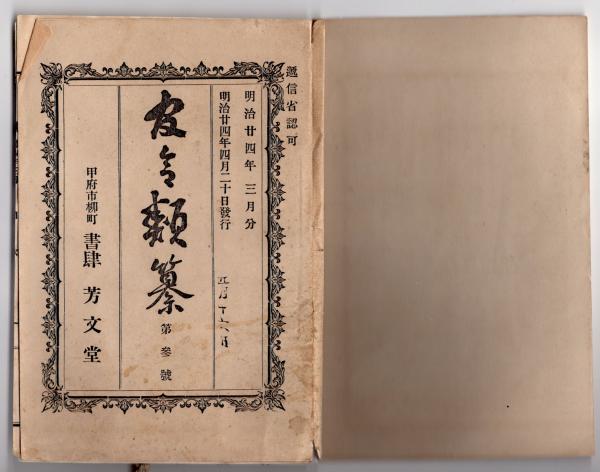 遞信省認可
明治廿四年 三月分
明治廿四年四月二十日發行
令類纂
第參號
甲府市柳町 書肆 芳文堂